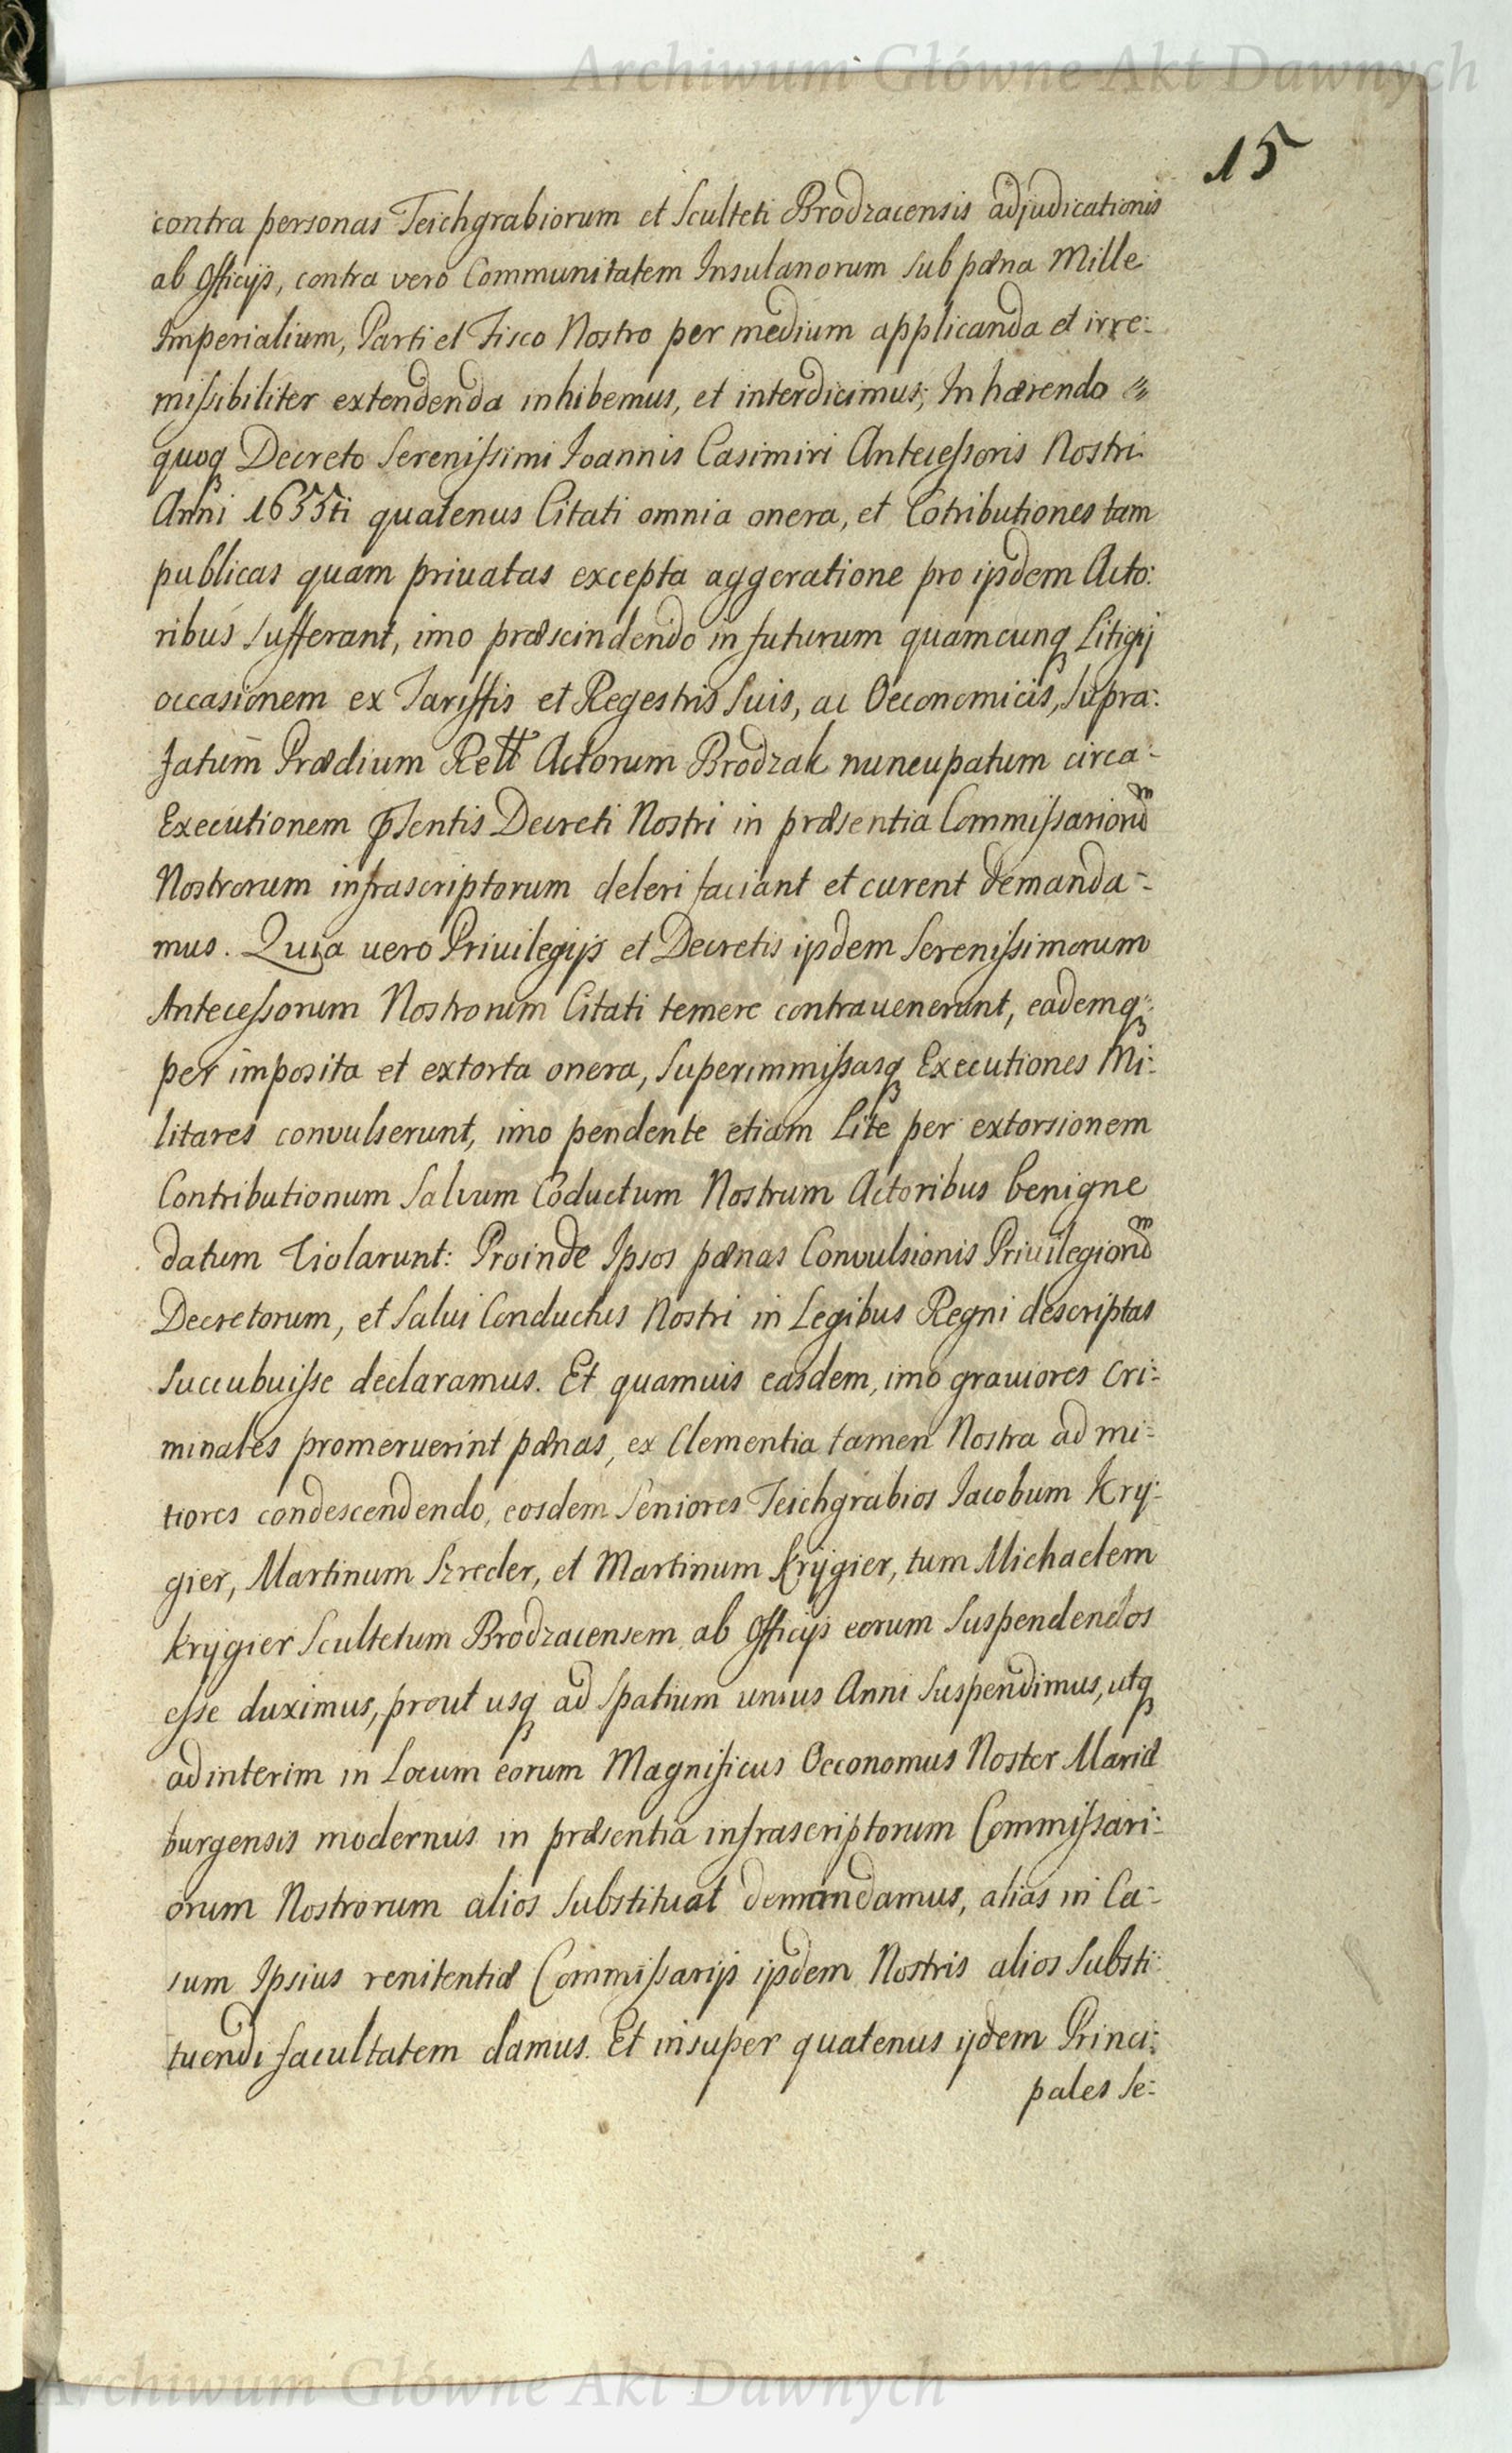 Archiwum Główne Akt Dawnych
15
contra personas Teichgrabiorum et Sculteti Brodzacensis adjudicationis
ab Officijs, contra vero Communitatem Insulanorum sub pæna Mille
Imperialium, Parti et Fisco Nostro per medium applicanda et irre:
missibiliter extendenda inhibemus, et interdicimus; Inhærendo
quoq Decreto Serenissimi Ioannis Casimiri Antecessoris Nostri
Anni 1655ti quatenus Citati omnia onera, et Cōtributiones tam
publicas quam priuatas excepta aggeratione pro ijsdem Acto:
ribus sufferant, imo præscindendo in futurum quamcunq Litigij
occasionem ex Tariffis et Regestris suis, ac Oeconomicis, supra:
fatum Prædium Rell Actorum Brodzak nuncupatum circa-
Executionem pṡentis Decreti Nostri in præsentia Commissariorū
Nostrorum infrascriptorum deleri faciant et curent demanda-
mus. Quia uero Priuilegijs et Decretis ijsdem Serenissimorum
Antecessorum Nostrorum Citati temere contrauenerunt, eademq
per imposita et extorta onera, superimmissasq Executiones Mi:
litares convulserunt, imo pendente etiam Lite per extorsionem
Contributionum Salvum Cōductum Nostrum Actoribus benigne
datum Violarunt: Proinde Ipsos pænas Convulsionis Priuilegiorū
Decretorum, et Salui Conductus Nostri in Legibus Regni descriptas
succubuisse declaramus. Et quamuis easdem, imo grauiores Cri:
minales promeruerint pænas, ex Clementia tamen Nostra ad mi:
tiores condescendendo, eosdem Seniores Teichgrabios Iacobum Kry:
gier, Martinum Szreder, et Martinum Krÿgier, tum Michaelem
Krÿgier Scultetum Brodzacensem ab Officijs eorum suspendendos
esse duximus, prout usq ad spatium unius Anni suspendimus, utq
ad interim in Locum eorum Magnificus Oeconomus Noster Mariæ
burgensis modernus in præsentia infrascriptorum Commissari:
orum Nostrorum alios substituat demandamus, alias in Ca-
sum Ipsius renitentiæ Commissarijs ijsdem Nostris alios substi:
tuendi facultatem damus. Et insuper quatenus ijdem Princi:
pales Se:
Archiwum Główne Akt Dawnych